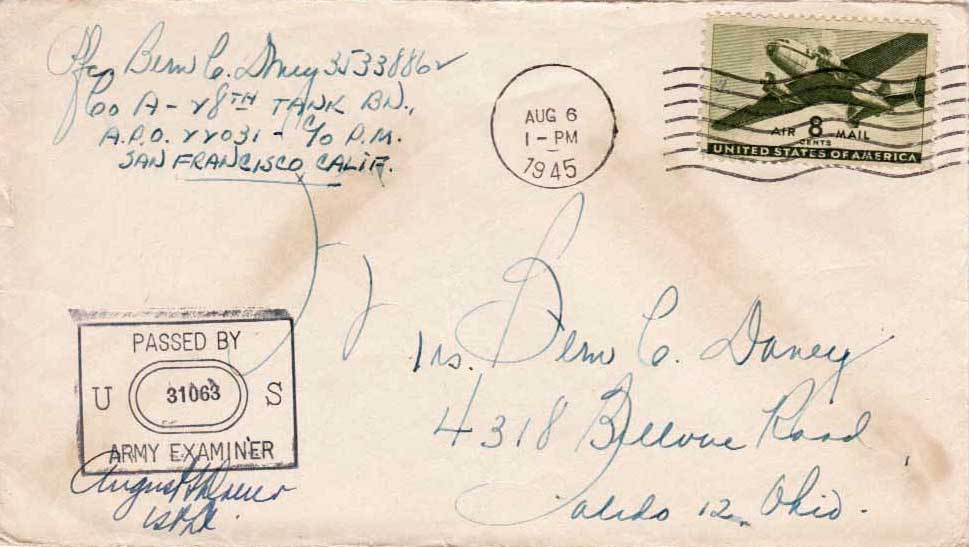 Pfc Bern C. Doney 35338862
Co A - 28TH TANK BN.,
A.P.O. 22031 - c/o P.M.
SAN FRANCISCO, CALIF.
AUG 6
1 - PM
1945
AIR 8 MAIL
CENTS
UNITED STATES OF AMERICA
Mrs. Bern C. Doney
4318 Bellevue Road
Toledo 12, Ohio.
PASSED BY
U 31063 S
ARMY EXAMINER
1st Lt.